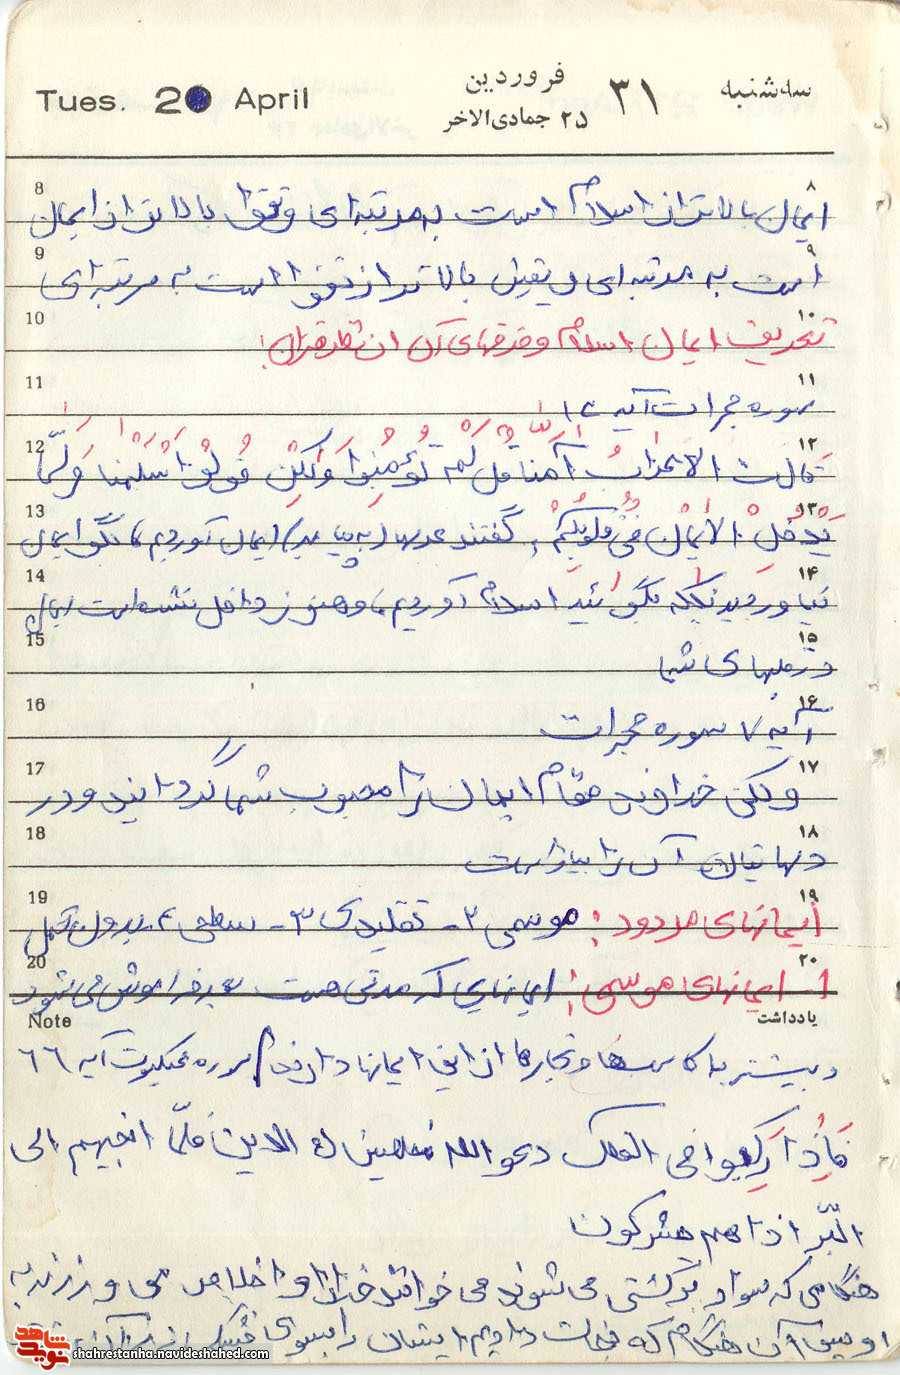 سه‌شنبه ۳۱ فروردین ۲۵ جمادی‌الاخر Tues. 20 April
8 ایمان بالاتر از اسلام است به مرتبه‌ای و تقوا بالاتر از ایمان ۸
9 است به مرتبه‌ای و یقین بالاتر از تقوا است به مرتبه‌ای ۹
10 تعریف ایمان اسلام و فرقهای آن از نظر قرآن: ۱۰
11 سوره حجرات آیه ۱۴ ۱۱
12 قالت الاعراب آمنا قل لم تؤمنوا ولکن قولوا اسلمنا و لمّا ۱۲
13 یدخل الایمان فی قلوبکم، گفتند عربها (به پیامبر) ایمان آوردیم ما بگو ایمان ۱۳
14 نیاوردید بلکه بگوئید اسلام آوردیم، و هنوز داخل نشده است ایمان ۱۴
15 در قلبهای شما ۱۵
16 آیه ۷ سوره حجرات ۱۶
17 ولکن خداوند مقام ایمان را محبوب شما گردانید و در ۱۷
18 دلهاتیان آن را بیاراست ۱۸
19 ایمانهای مردود: موسمی ۲- تقلیدی ۳- سطحی ۴ بدون عمل ۱۹
20 1. ایمانهای موسمی: ایمانهایی که مدتی هست بعد فراموش می‌شود ۲۰
Note یادداشت
و بیشتر ما کاسبها و تجارها از این ایمانها دارند / سوره عنکبوت آیه ۶۶
فاذا رکبوا فی الفلک دعو الله مخلصین له الدین فلمّا انجیهم الی
البّر اذا هم یشرکون
هنگامی که سوار بر کشتی می شوند می خوانند خدا را و اخلاص می ورزند به
او پس آن هنگام که نجات دادیم ایشان را بسوی خشکی
نوید شاهد shahrestanha.navideshahed.com